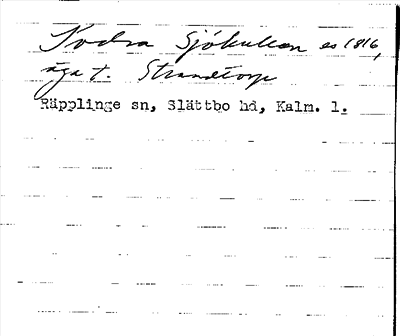 Norra Sjökullan es 1816,
äga t. Strandtorp
Räpplinge sn, Slättbo hd, Kalm. l.